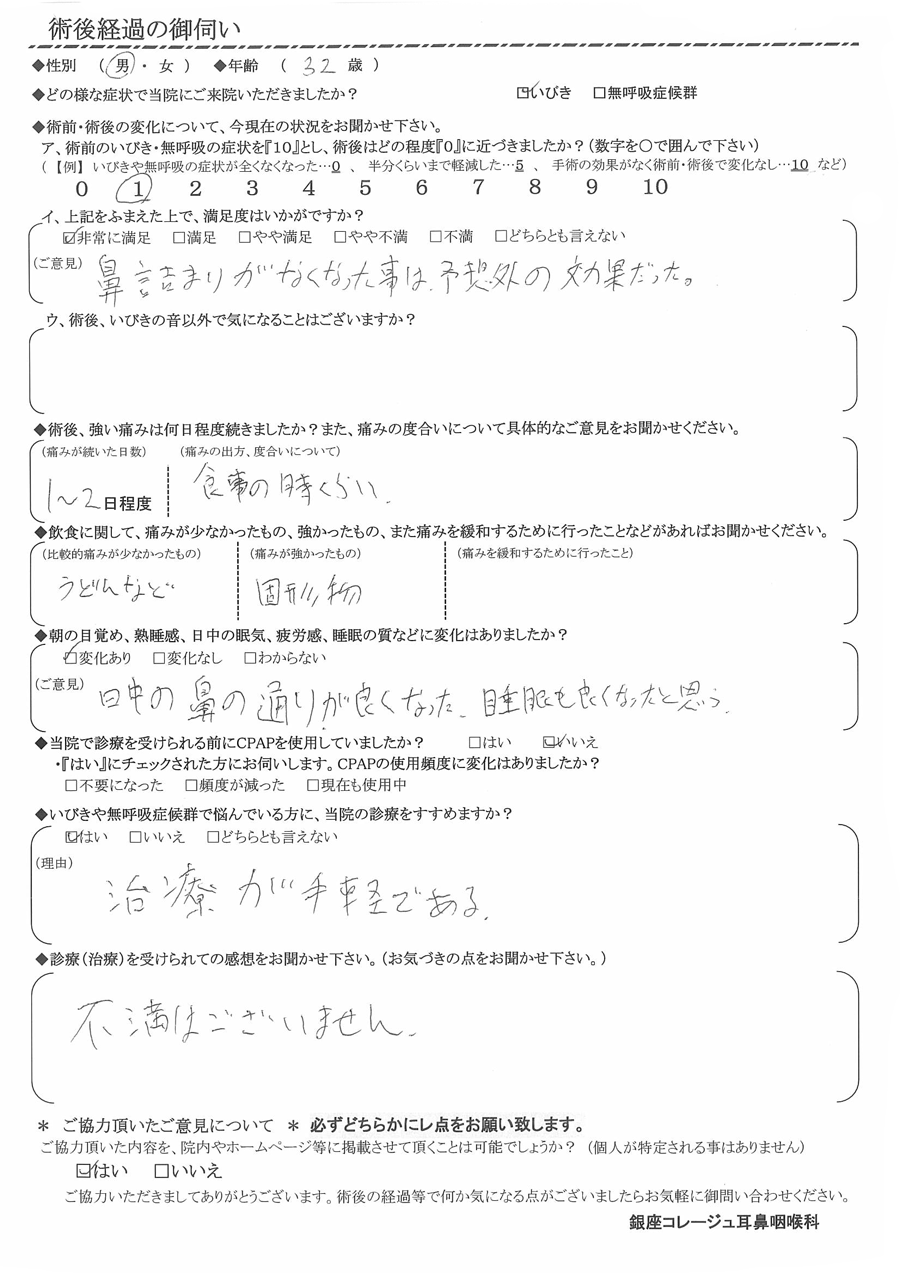 術後経過の御伺い
◆性別 （ 男 ・ 女 ） ◆年齢 （ 32 歳 ）
◆どの様な症状で当院にご来院いただきましたか？ ☑いびき □無呼吸症候群
◆術前・術後の変化について、今現在の状況をお聞かせ下さい。
ア、術前のいびき・無呼吸の症状を『10』とし、術後はどの程度『0』に近づきましたか？（数字を○で囲んで下さい）
（【例】いびきや無呼吸の症状が全くなくなった…0 、 半分くらいまで軽減した…5 、 手術の効果がなく術前・術後で変化なし…10 など）
0 1 2 3 4 5 6 7 8 9 10
イ、上記をふまえた上で、満足度はいかがですか？
☑非常に満足 □満足 □やや満足 □やや不満 □不満 □どちらとも言えない
（ご意見） 鼻詰まりがなくなった事は、予想外の効果だった。
ウ、術後、いびきの音以外で気になることはございますか？
◆術後、強い痛みは何日程度続きましたか？また、痛みの度合いについて具体的なご意見をお聞かせください。
（痛みが続いた日数） （痛みの出方、度合いについて）
1〜2日程度 食事の時くらい。
◆飲食に関して、痛みが少なかったもの、強かったもの、また痛みを緩和するために行ったことなどがあればお聞かせください。
（比較的痛みが少なかったもの） （痛みが強かったもの） （痛みを緩和するために行ったこと）
うどんなど 固形物
◆朝の目覚め、熟睡感、日中の眠気、疲労感、睡眠の質などに変化はありましたか？
☑変化あり □変化なし □わからない
（ご意見） 日中の鼻の通りが良くなった。睡眠も良くなったと思う。
◆当院で診療を受けられる前にCPAPを使用していましたか？ □はい ☑いいえ
・『はい』にチェックされた方にお伺いします。CPAPの使用頻度に変化はありましたか？
□不要になった □頻度が減った □現在も使用中
◆いびきや無呼吸症候群で悩んでいる方に、当院の診療をすすめますか？
☑はい □いいえ □どちらとも言えない
（理由）
治療が手軽である。
◆診療（治療）を受けられての感想をお聞かせ下さい。（お気づきの点をお聞かせ下さい。）
不満はございません。
＊ ご協力頂いたご意見について ＊ 必ずどちらかにレ点をお願い致します。
ご協力頂いた内容を、院内やホームページ等に掲載させて頂くことは可能でしょうか？（個人が特定される事はありません）
☑はい □いいえ
ご協力いただきましてありがとうございます。術後の経過等で何か気になる点がございましたらお気軽に御問い合わせください。
銀座コレージュ耳鼻咽喉科